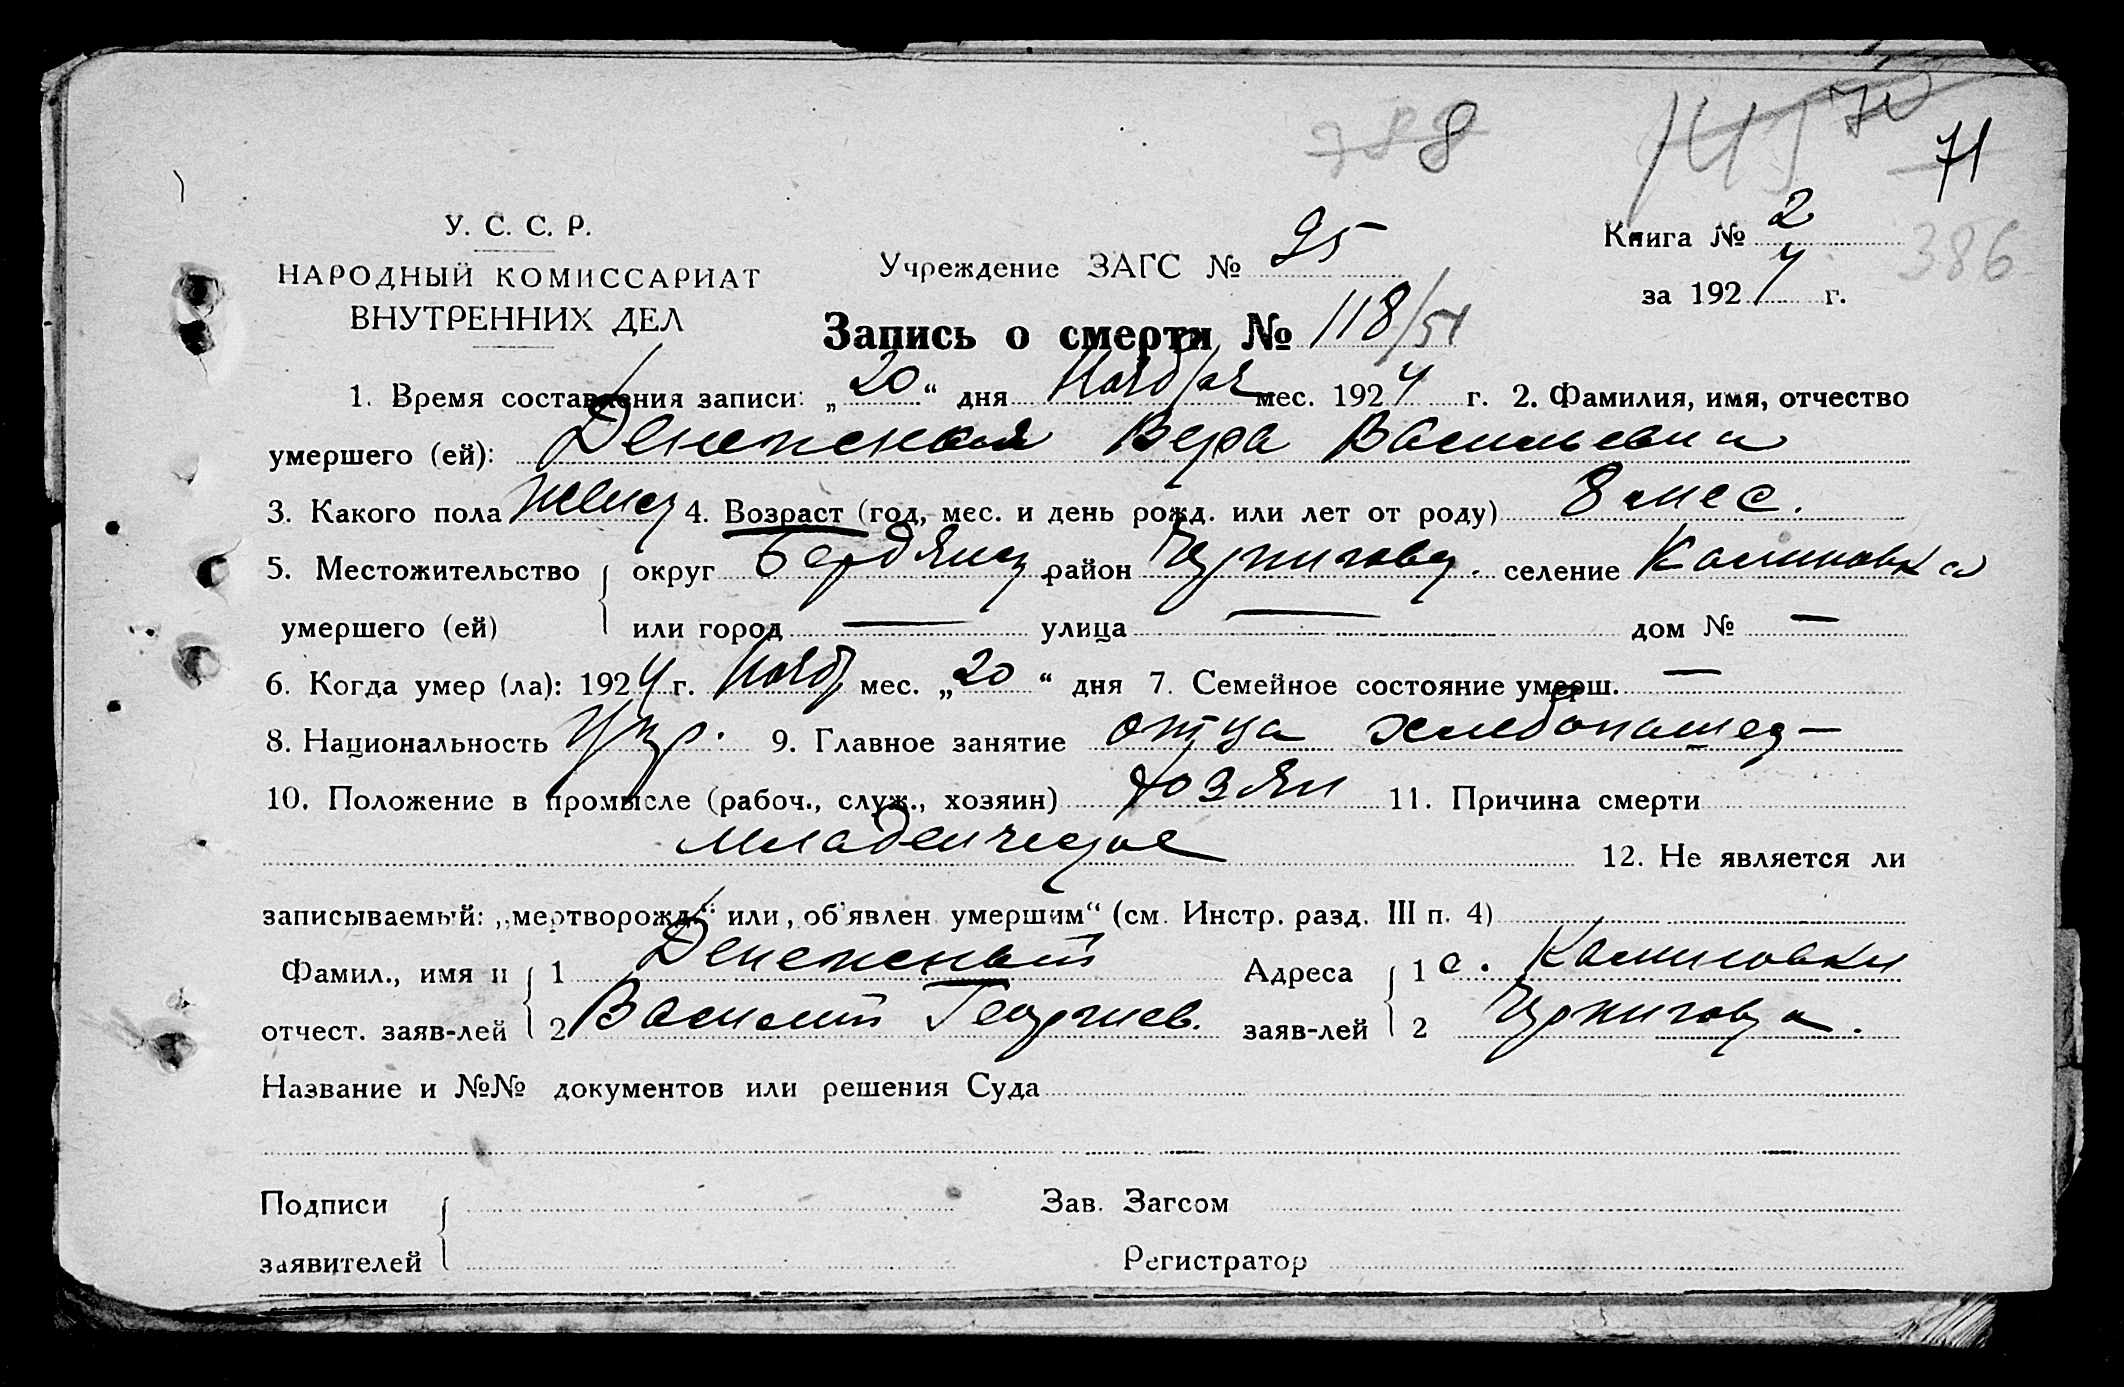 788 145 70
71
У. С. С. Р.
НАРОДНЫЙ КОМИССАРИАТ
ВНУТРЕННИХ ДЕЛ
Учреждение ЗАГС № 95
Книга № 2
386
за 1924 г.
Запись о смерти № 118/51
1. Время составления записи: „20“ дня Ноября мес. 1924 г. 2. Фамилия, имя, отчество
умершего (ей): Денежная Вера Васильевна
3. Какого пола женск 4. Возраст (год, мес. и день рожд. или лет от роду) 8 мес.
5. Местожительство округ Бердянск район Черниговск. селение Калиновка
умершего (ей) или город — улица — дом № —
6. Когда умер (ла): 1924 г. Нояб мес. „20“ дня 7. Семейное состояние умерш. —
8. Национальность Укр. 9. Главное занятие отца хлебопашец —
10. Положение в промысле (рабоч., служ., хозяин) хозяин 11. Причина смерти
младенческая 12. Не является ли
записываемый: „мертворожд.“ или „об'явлен умершим“ (см. Инстр. разд. III п. 4)
Фамил., имя и 1 Денежный Адреса 1 с. Калиновки
отчест. заяв-лей 2 Василий Георгиев. заяв-лей 2
Название и №№ документов или решения Суда
Подписи Зав. Загсом
заявителей Регистратор